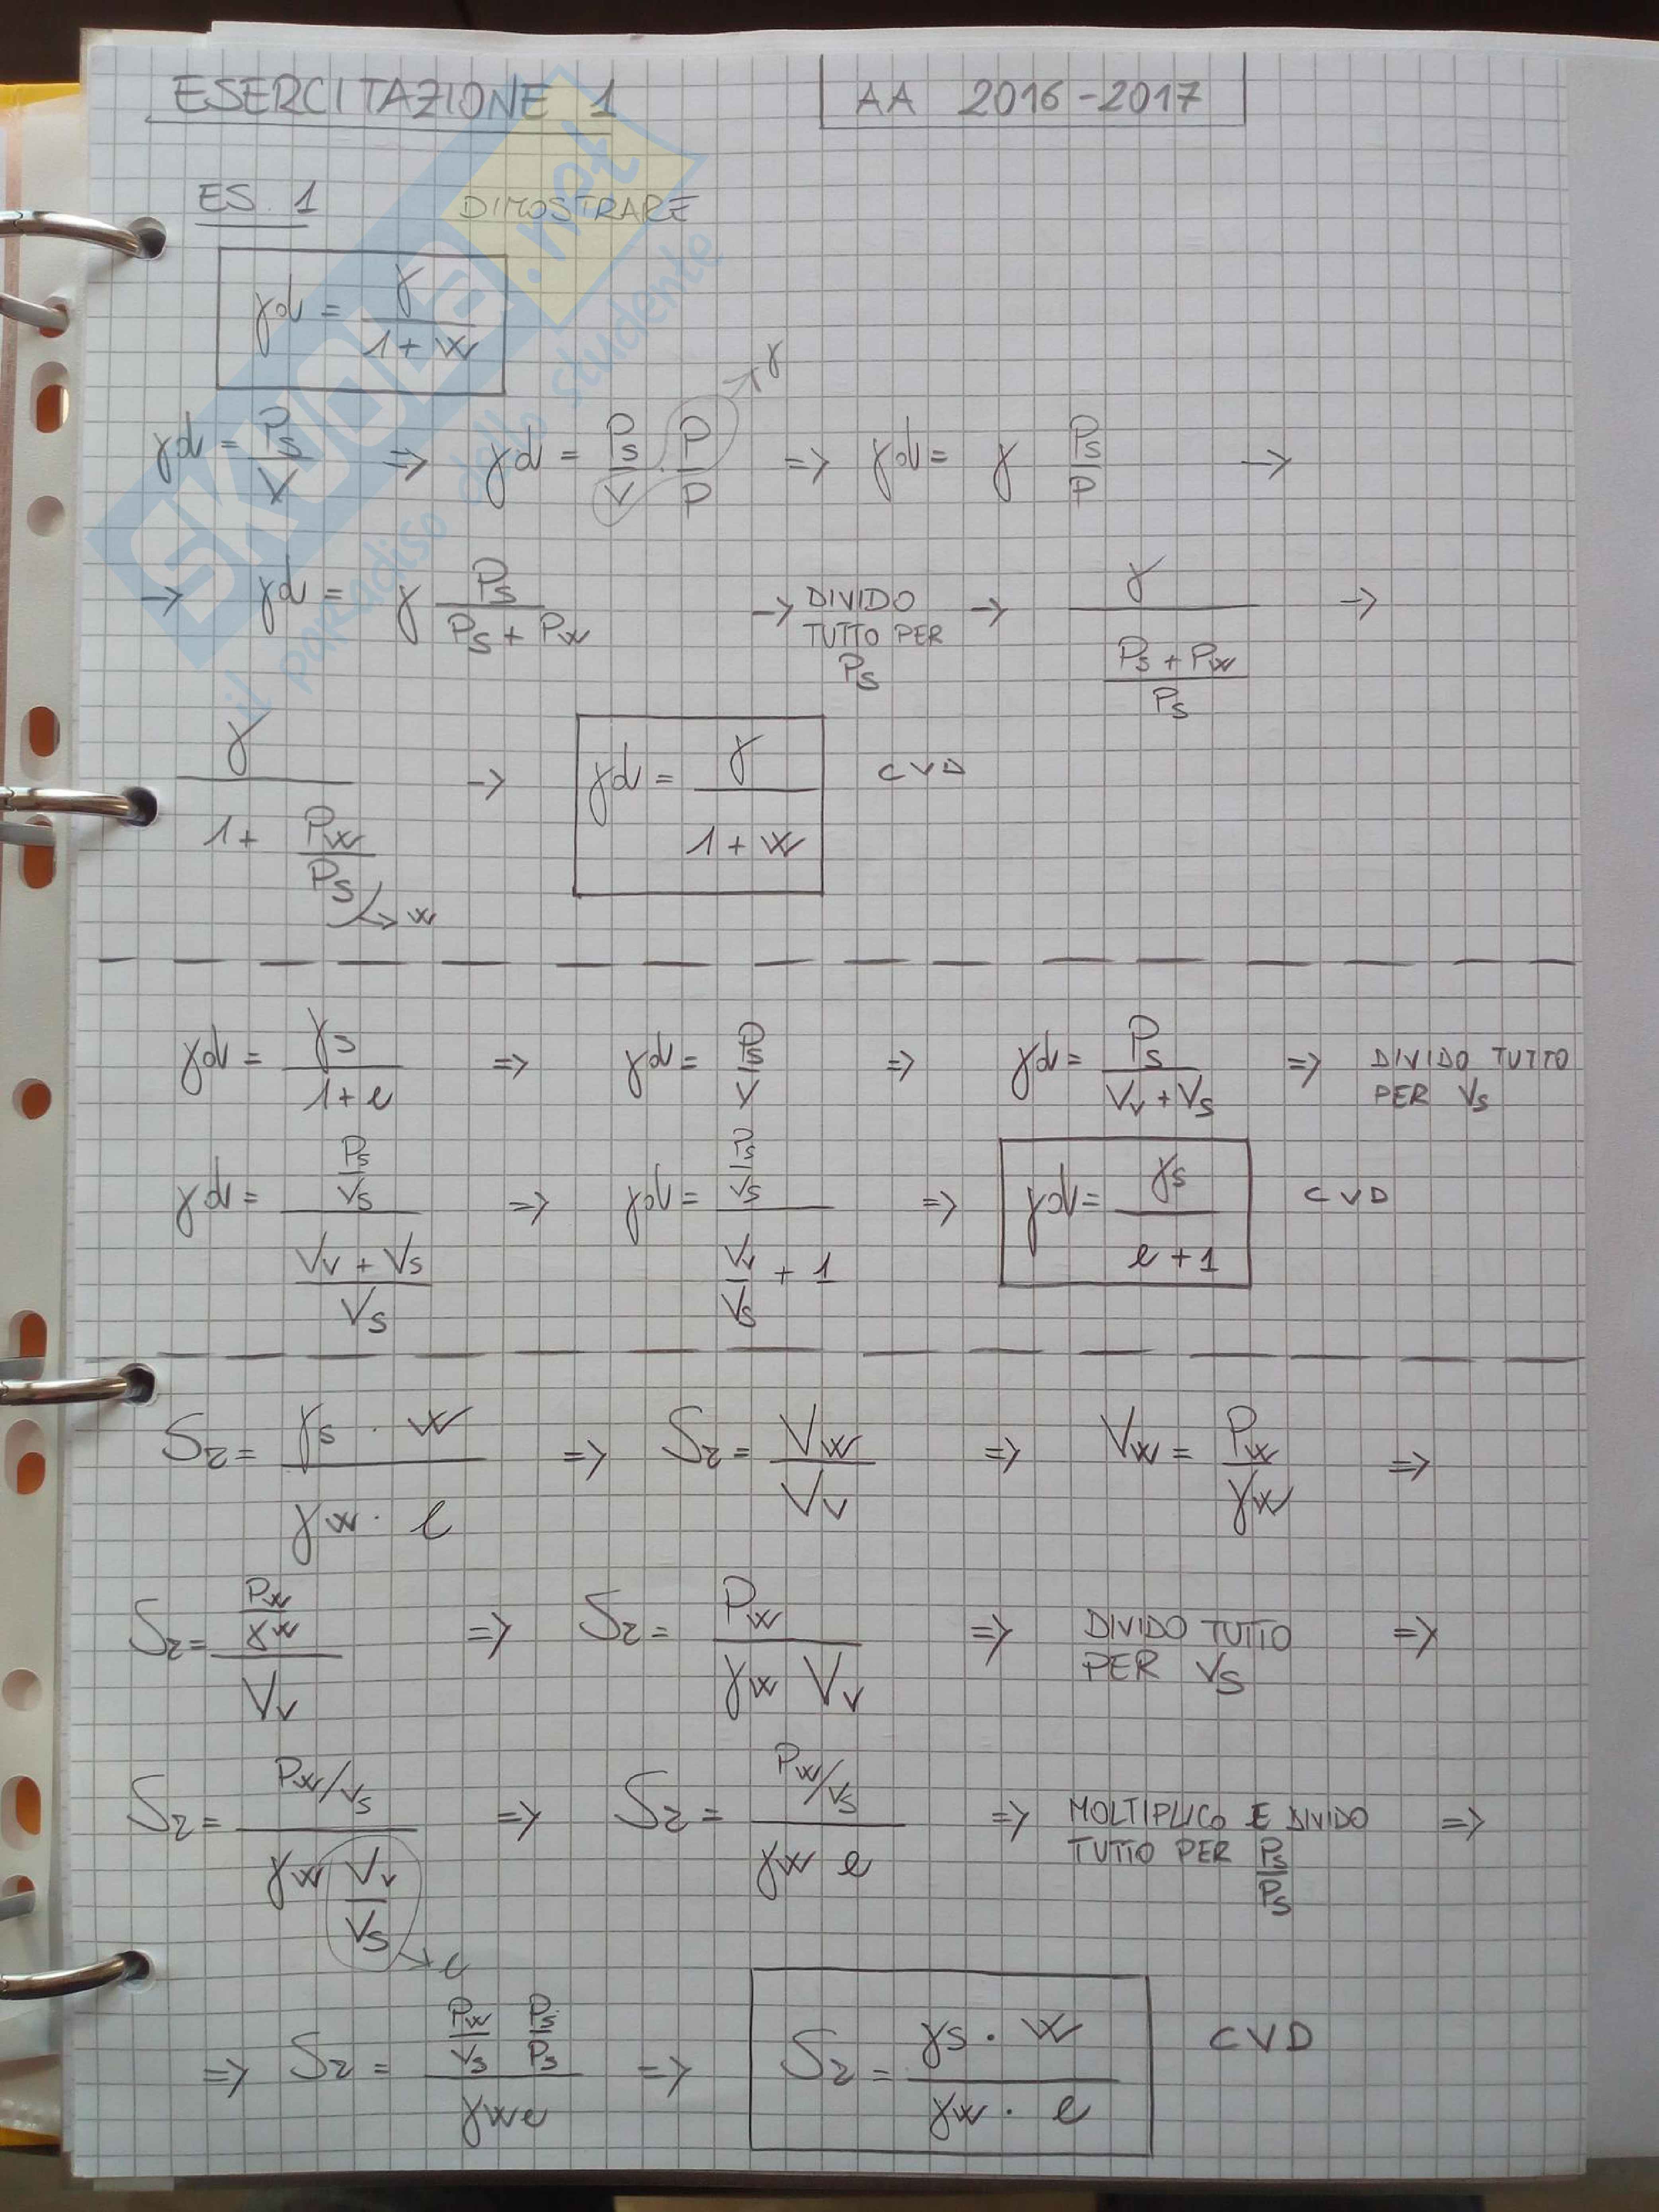 ESERCITAZIONE 1 AA 2016-2017
ES. 1 DIMOSTRARE
γd = γ / (1+w)
γd = Ps/V => γd = Ps/V · P/P → γ => γd = γ Ps/P →
→ γd = γ Ps/(Ps+Pw) → DIVIDO TUTTO PER Ps → γ / ((Ps+Pw)/Ps) →
γ / (1+ Pw/Ps) → w → γd = γ / (1+w) CVD
γd = γs/(1+e) => γd = Ps/V => γd = Ps/(Vv+Vs) => DIVIDO TUTTO PER Vs
γd = (Ps/Vs) / ((Vv+Vs)/Vs) => γd = (Ps/Vs) / (Vv/Vs + 1) => γd = γs/(e+1) CVD
Sr = (γs · w) / (γw · e) => Sr = Vw/Vv => Vw = Pw/γw =>
Sr = (Pw/γw) / Vv => Sr = Pw / (γw Vv) => DIVIDO TUTTO PER Vs =>
Sr = (Pw/Vs) / (γw Vv/Vs) → e => Sr = (Pw/Vs) / (γw e) => MOLTIPLICO E DIVIDO TUTTO PER Ps/Ps =>
=> Sr = (Pw/Vs Ps/Ps) / (γw e) => Sr = (γs · w) / (γw · e) CVD
SKUOLA.net
il paradiso dello studente